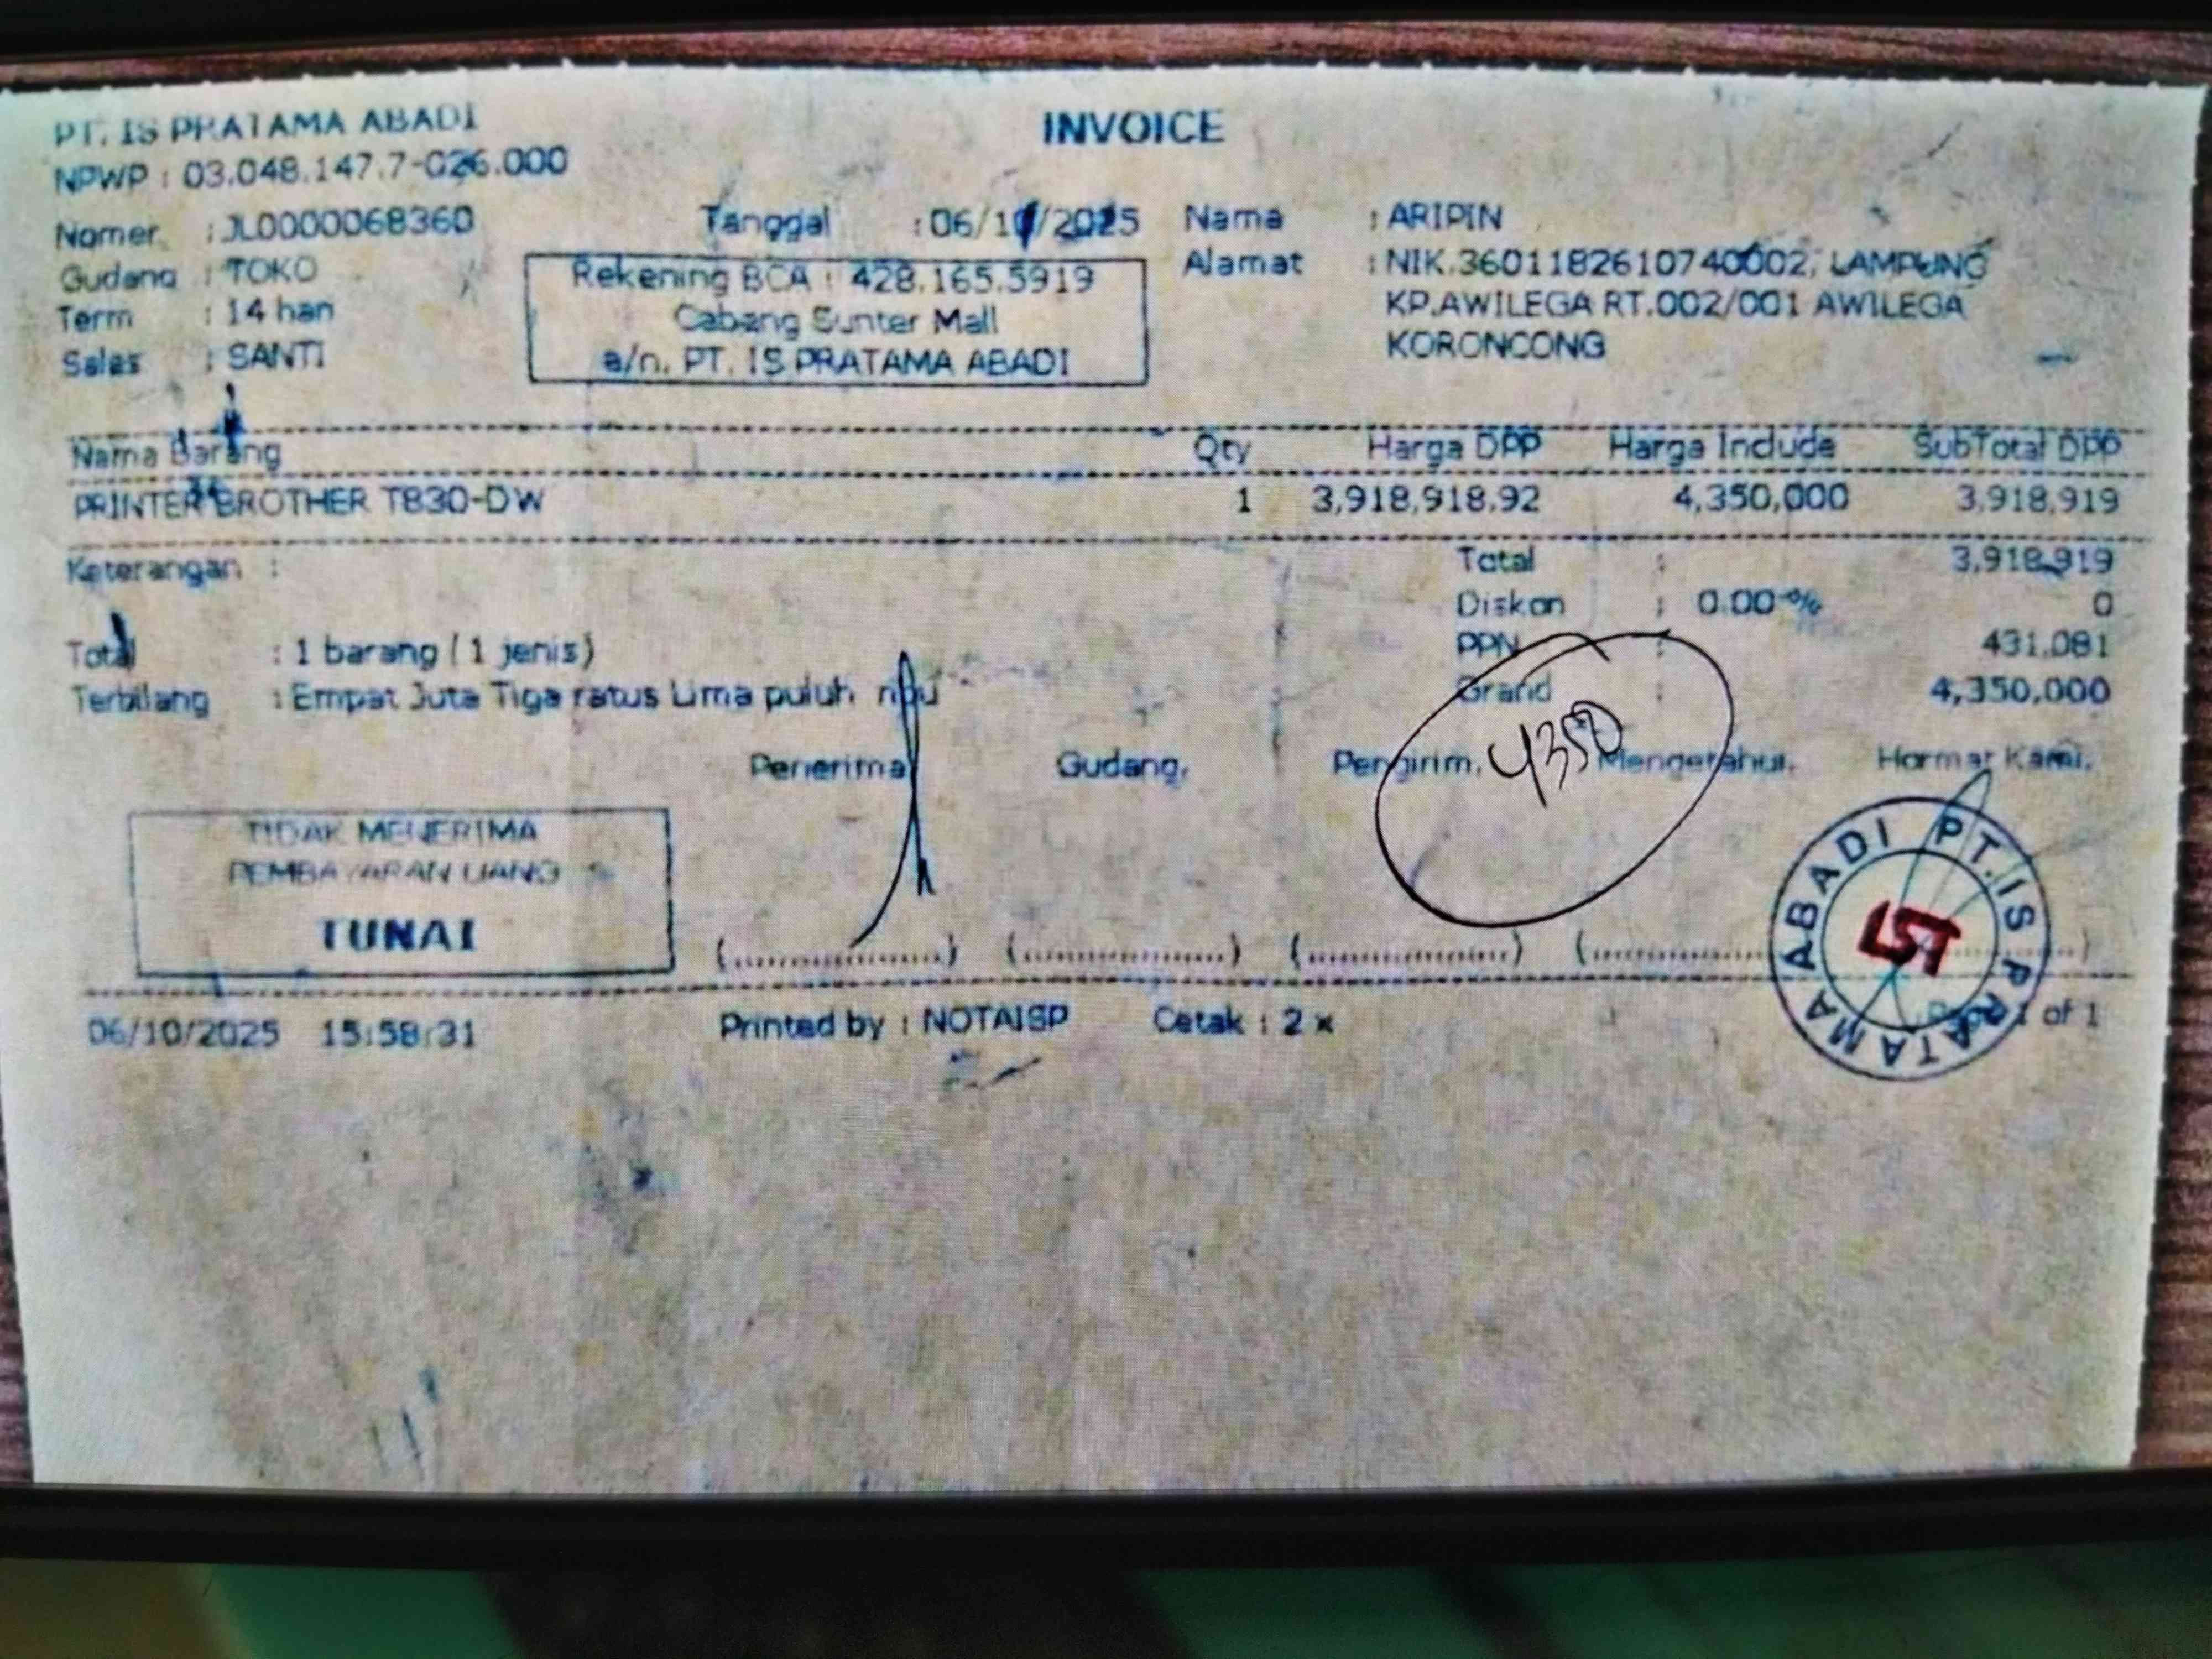 PT. IS PRATAMA ABADI
INVOICE
NPWP : 03.048.147.7-026.000
Nomer : JL0000068360
Tanggal : 06/10/2025
Nama : ARIPIN
Gudang : TOKO
Rekening BCA : 428.165.5919
Alamat : NIK.3601182610740002, LAMPUNG
Term : 14 hari
Cabang Sunter Mall
KP.AWILEGA RT.002/001 AWILEGA
Sales : SANTI
a/n. PT. IS PRATAMA ABADI
KORONCONG
Nama Barang Qty Harga DPP Harga Include SubTotal DPP
PRINTER BROTHER T830-DW 1 3,918,918.92 4,350,000 3,918,919
Keterangan :
Total : 3,918,919
Diskon : 0.00 % 0
Total : 1 barang ( 1 jenis)
PPN : 431,081
Terbilang : Empat Juta Tiga ratus Lima puluh ribu
Grand : 4,350,000
4350
Penerima Gudang, Pengirim, Mengetahui, Hormat Kami,
TIDAK MENERIMA
PEMBAYARAN UANG
TUNAI
(..................) (..................) (..................) (..................)
PT. IS PRATAMA ABADI
06/10/2025 15:58:31 Printed by : NOTAISP Cetak : 2 x Page 1 of 1